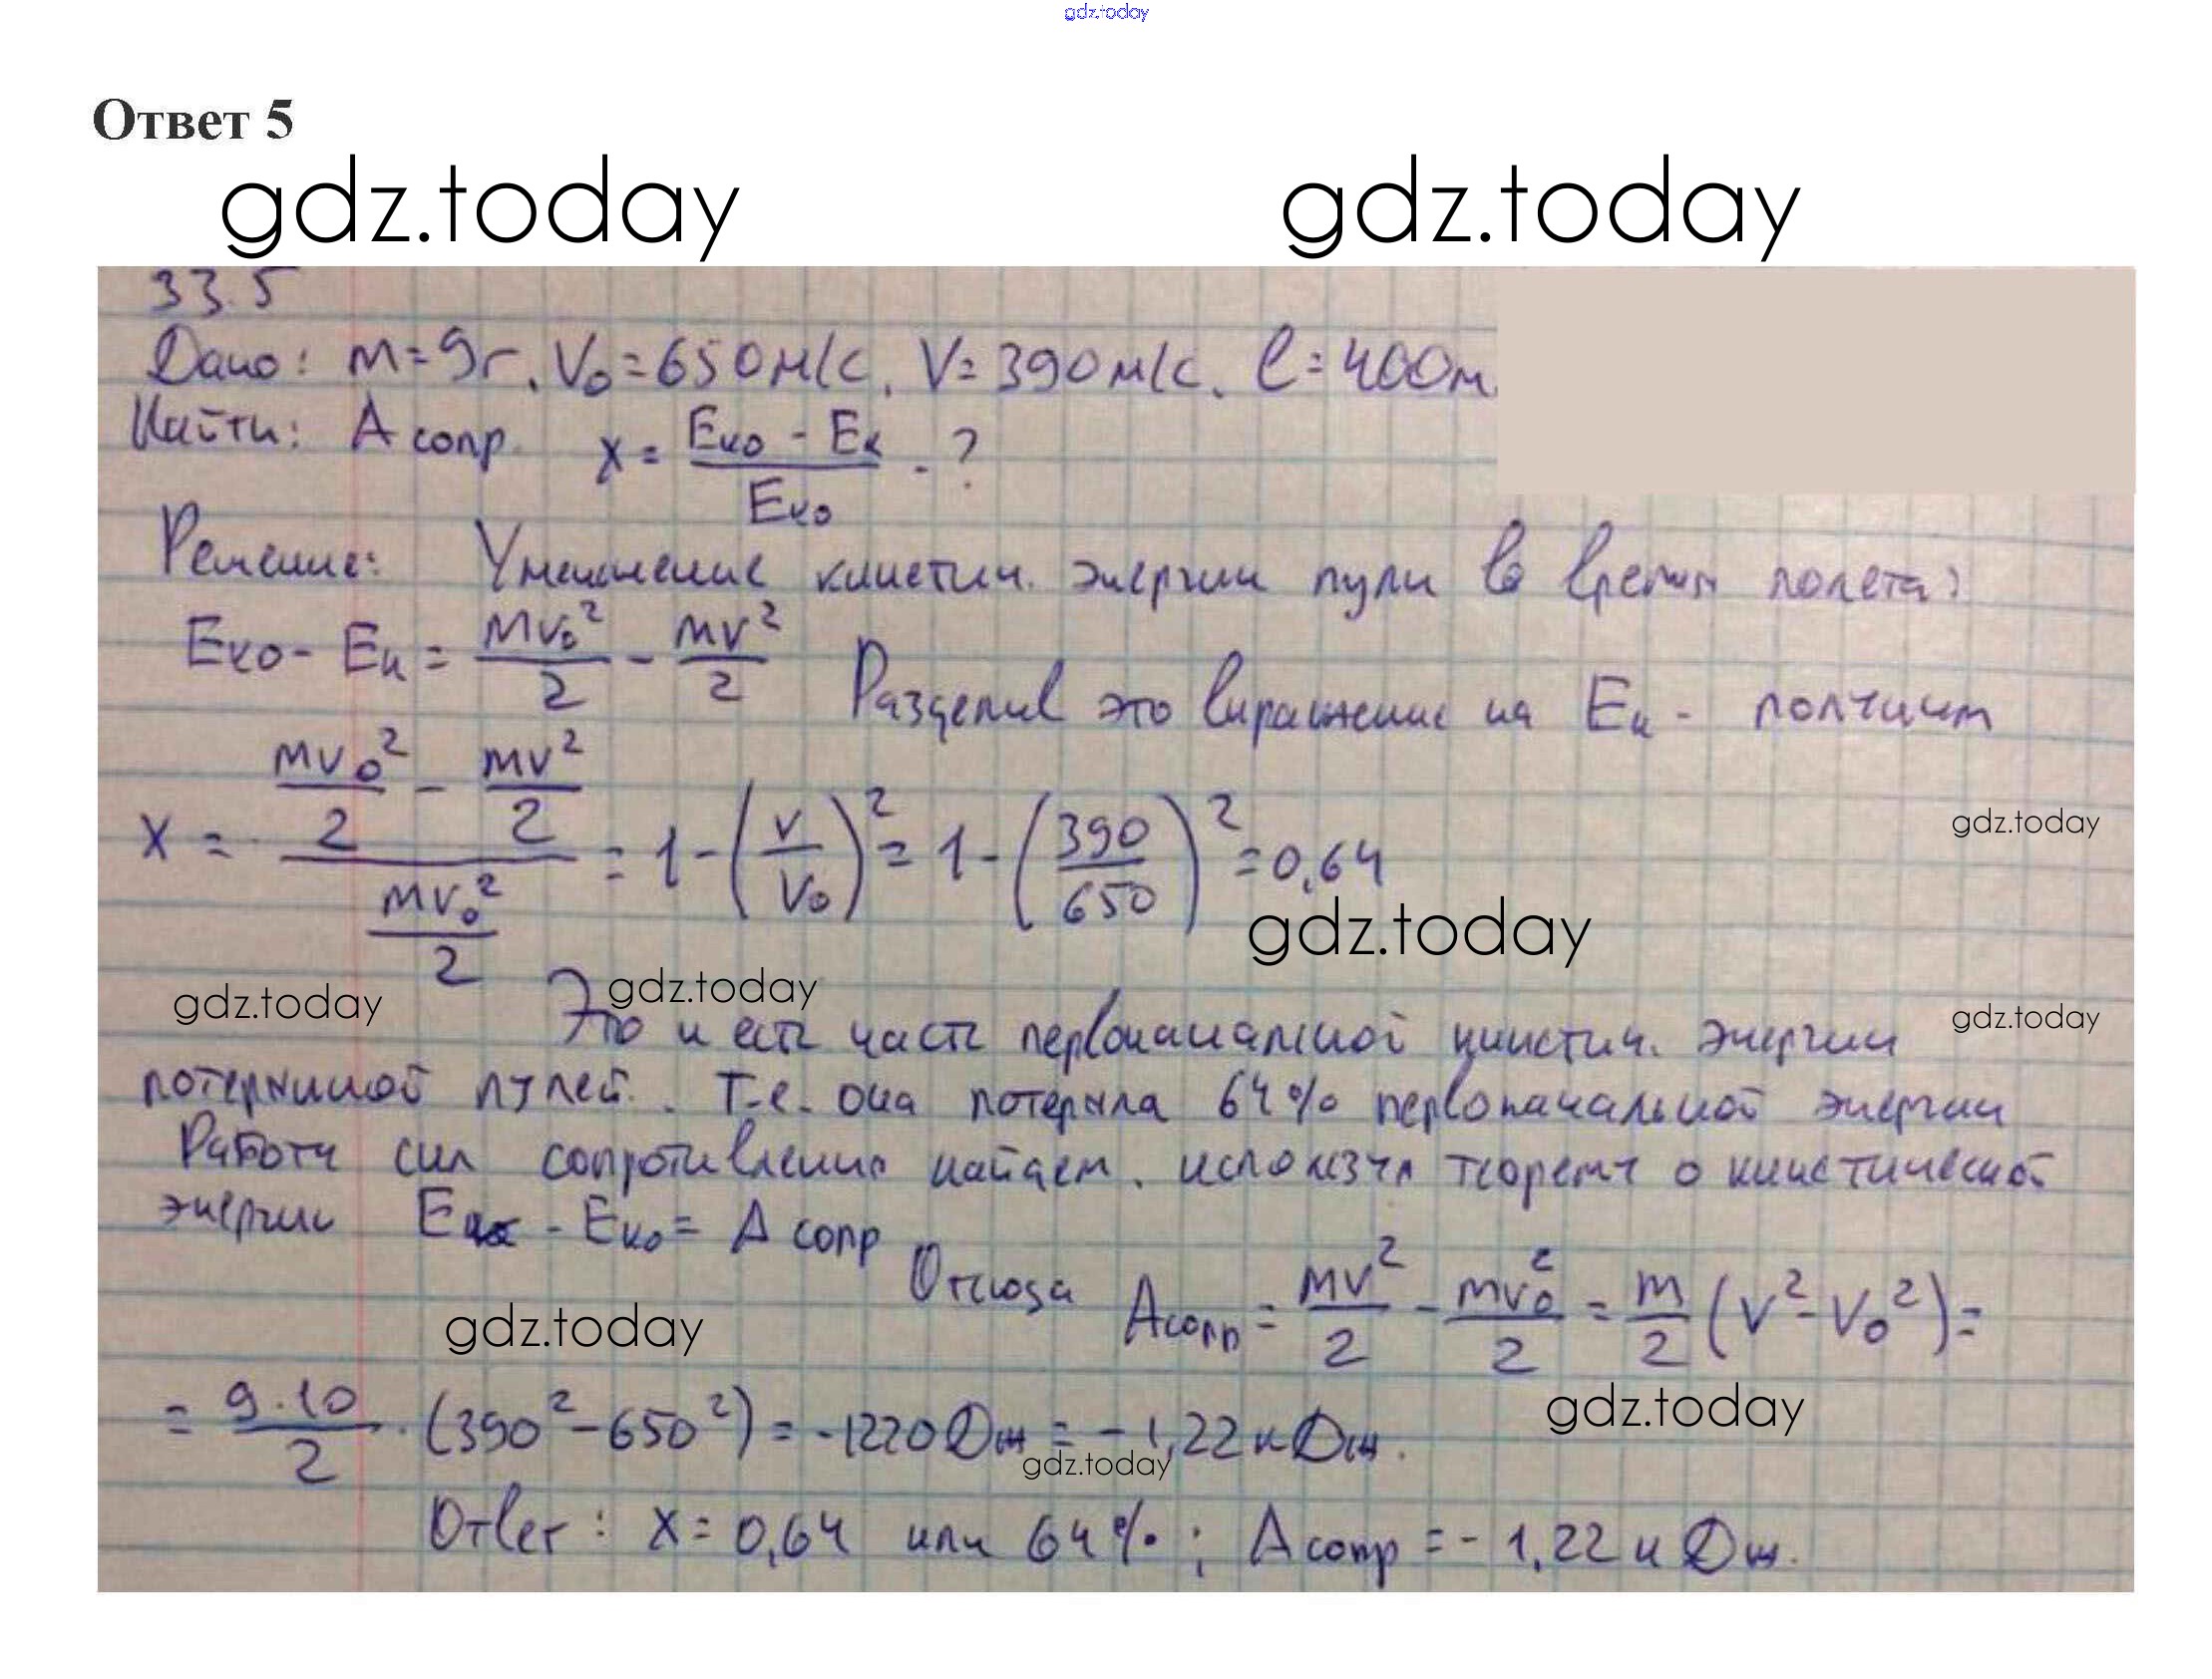 gdz.today
Ответ 5
gdz.today gdz.today
33.5
Дано: m = 9г, V₀ = 650 м/с, V = 390 м/с, l = 400м
Найти: A сопр x = (Eк₀ - Eк) / Eк₀ - ?
Решение: Уменьшение кинетич. энергии пули во время полета:
Eк₀ - Eк = mv₀²/2 - mv²/2 Разделив это выражение на Eк - полчим
x = (mv₀²/2 - mv²/2) / (mv₀²/2) = 1 - (v/v₀)² = 1 - (390/650)² = 0,64
gdz.today
gdz.today
gdz.today gdz.today gdz.today
Это и есть часть первоначальной кинетич. энергии
потерянной пулей. Т.е. она потеряла 64% первоначальной энергии
Работу сил сопротивления найдем, используя теорему о кинетической
энергии Eк - Eк₀ = A сопр
Отсюда Aсопр = mv²/2 - mv₀²/2 = m/2 (v² - v₀²) =
gdz.today
gdz.today
= 9·10/2 · (390² - 650²) = -1220 Дж = -1,22 кДж.
gdz.today
Ответ: x = 0,64 или 64%; A сопр = -1,22 кДж.